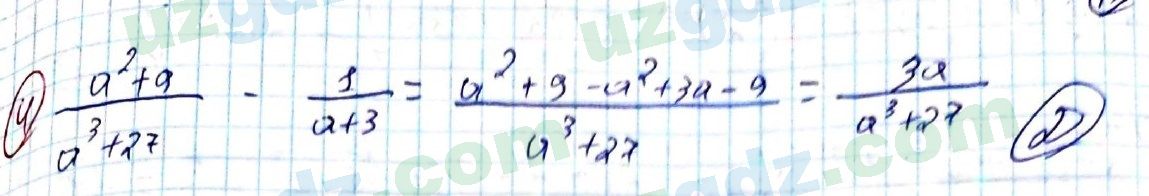 4) (a²+9)/(a³+27) - 1/(a+3) = (a²+9-a²+3a-9)/(a³+27) = 3a/(a³+27) D
uzgdz.com